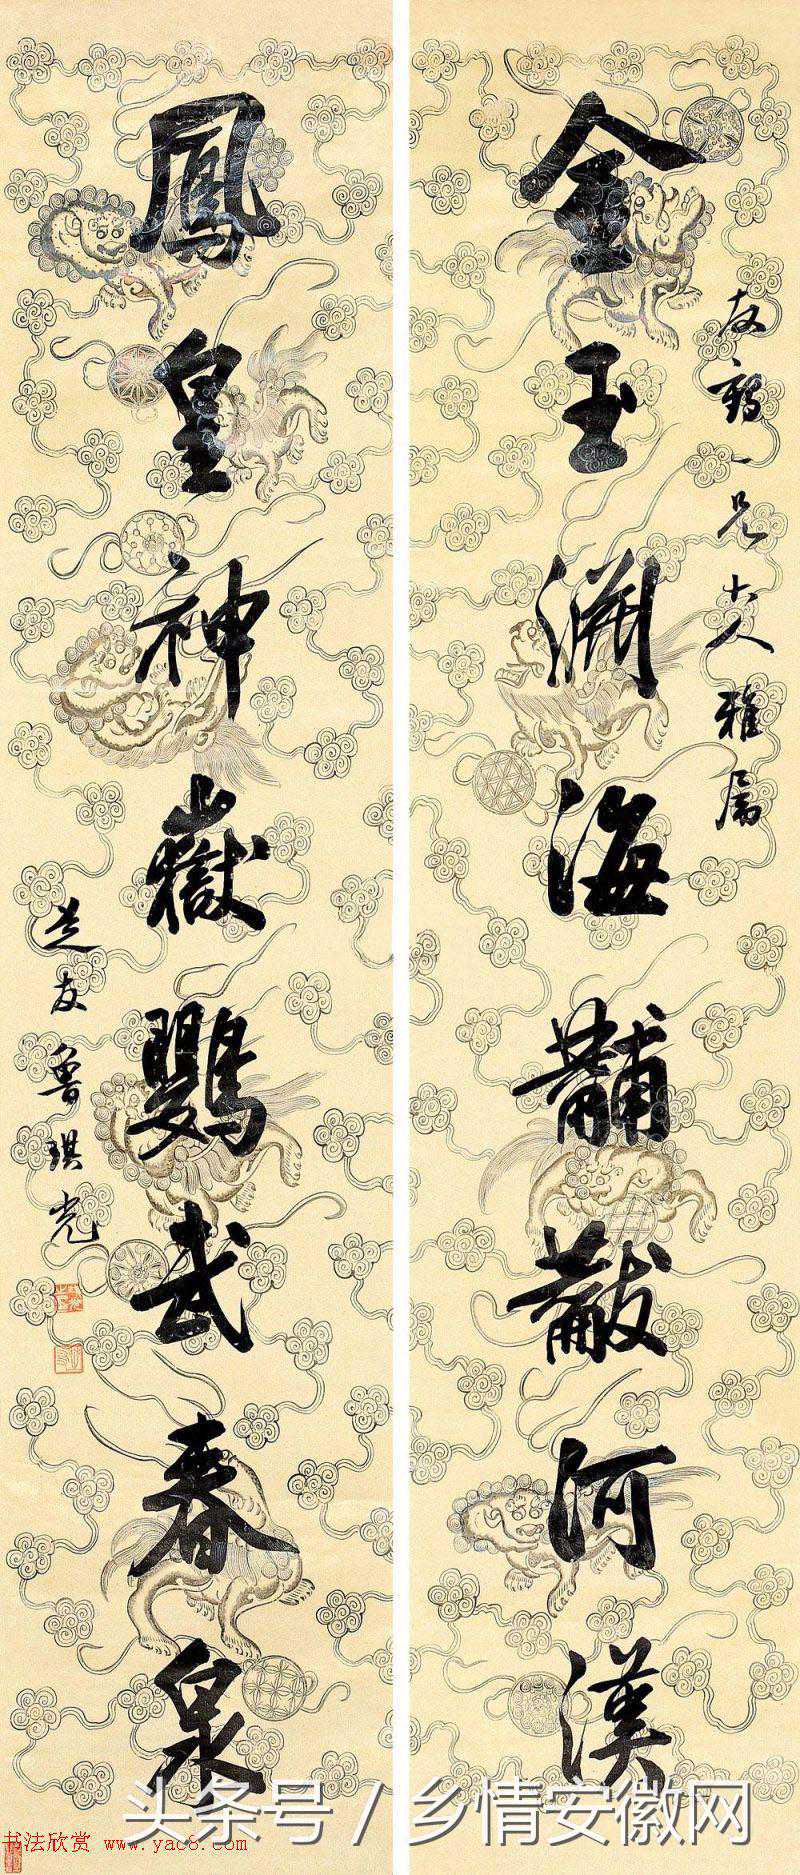 友鶴一兄大人雅属
金玉淵海黼黻河漢
鳳皇神嶽鸚武春泉
芝友魯琪光
头条号 / 乡情安徽网
书法欣赏 www.yac8.com